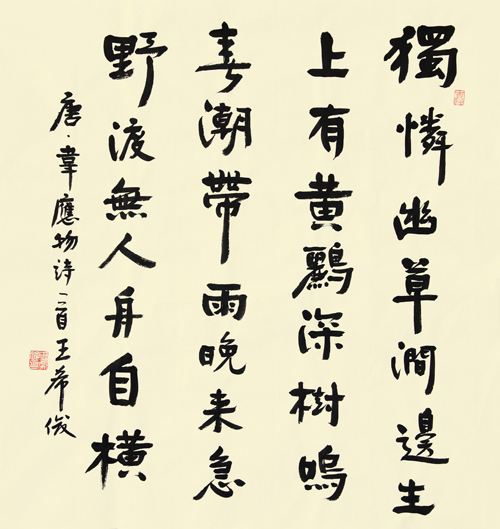 獨憐幽草澗邊生
上有黄鸝深樹鳴
春潮帶雨晚来急
野渡無人舟自横
唐·韋應物詩一首王希俊